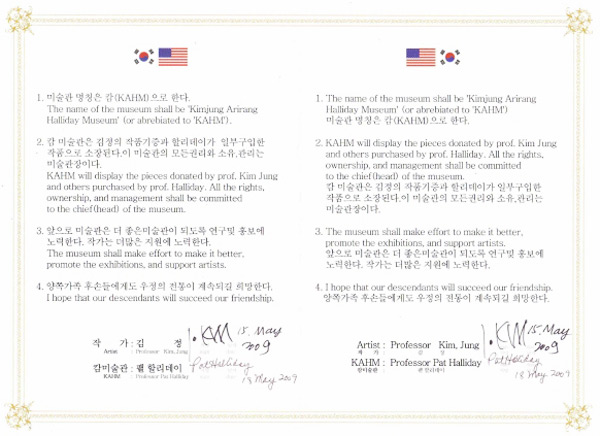 1. 미술관 명칭은 캄(KAHM)으로 한다.
The name of the museum shall be 'Kimjung Arirang
Halliday Museum' (or abrebiated to 'KAHM').
2. 캄 미술관은 김정의 작품기증과 할리데이가 일부구입한
작품으로 소장된다.이 미술관의 모든권리와 소유,관리는
미술관장이다.
KAHM will display the pieces donated by prof. Kim Jung
and others purchased by prof. Halliday. All the rights,
ownership, and management shall be committed
to the chief(head) of the museum.
3. 앞으로 미술관은 더 좋은미술관이 되도록 연구및 홍보에
노력한다. 작가는 더많은 지원에 노력한다.
The museum shall make effort to make it better,
promote the exhibitions, and support artists.
4. 양쪽가족 후손들에게도 우정의 전통이 계속되길 희망한다.
I hope that our descendants will succeed our friendship.
작 가 : 김 정
Artist : Professor Kim, Jung
KIM 15. May
2009
캄미술관 : 팰 할리데이
KAHM : Professor Pat Halliday
Pat Halliday
13 May 2009
1. The name of the museum shall be 'Kimjung Arirang
Halliday Museum' (or abrebiated to 'KAHM')
미술관 명칭은 캄(KAHM)으로 한다.
2. KAHM will display the pieces donated by prof. Kim Jung
and others purchased by prof. Halliday. All the rights,
ownership, and management shall be committed
to the chief(head) of the museum.
캄 미술관은 김정의 작품기증과 할리데이가 일부구입한
작품으로 소장된다.이 미술관의 모든권리와 소유,관리는
미술관장이다.
3. The museum shall make effort to make it better,
promote the exhibitions, and support artists.
앞으로 미술관은 더 좋은미술관이 되도록 연구및 홍보에
노력한다. 작가는 더많은 지원에 노력한다.
4. I hope that our descendants will succeed our friendship.
양쪽가족 후손들에게도 우정의 전통이 계속되길 희망한다.
Artist : Professor Kim, Jung
작 가 : 김 정
KIM 15. May
2009
KAHM : Professor Pat Halliday
캄미술관 : 팰 할리데이
Pat Halliday
13 May 2009